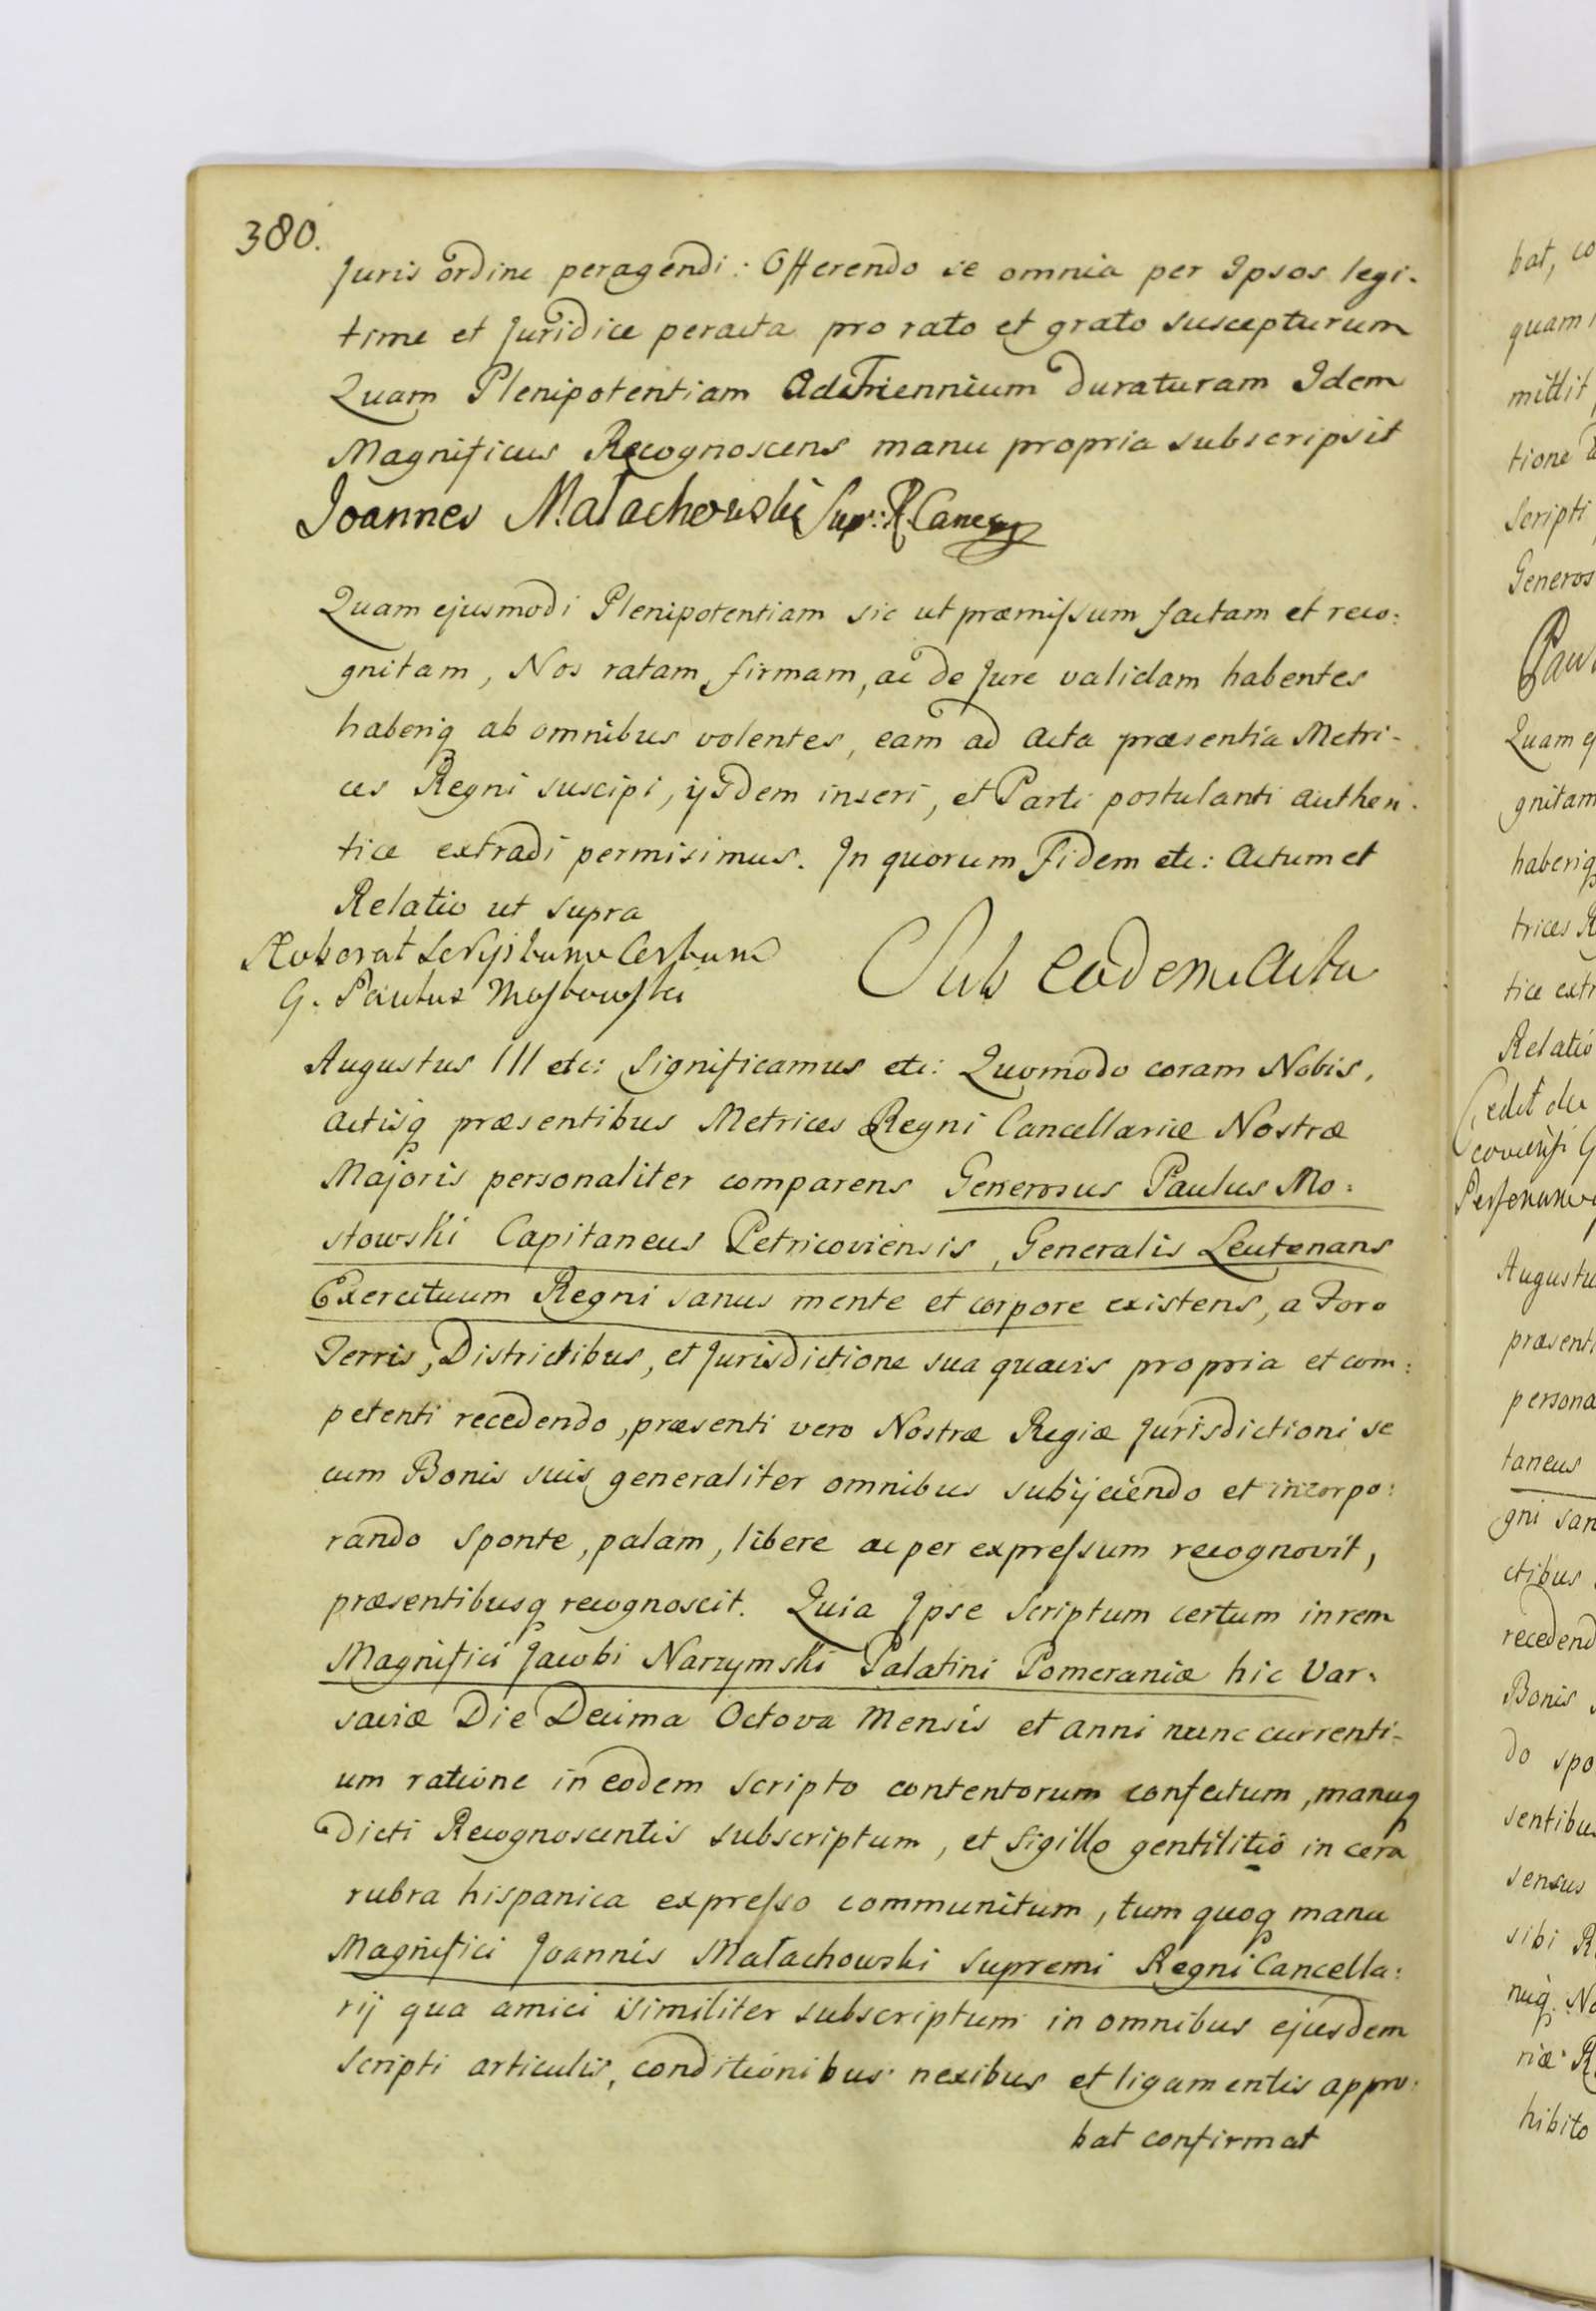 380.
Juris ordine peragendi: Offerendo se omnia per Ipsos legi-
time et Juridice peracta pro rato et grato suscepturum
Quam Plenipotentiam Ad Triennium duraturam Idem
Magnificus Recognoscens manu propria subscripsit
Joannes Małachowski Sup: R. Canc
Quam ejusmodi Plenipotentiam sic ut præmissum factam et reco:
gnitam, Nos ratam, firmam, ac de Jure validam habentes
haberiq ab omnibus volentes, eam ad Acta præsentia Metri-
ces Regni suscipi, ijsdem inseri, et Parti postulanti authen-
tice extradi permisimus. In quorum Fidem etc: Actum et
Relatio ut supra
Roborat Scriptum Certum
G. Paulus Mostowski
Sub eadem Actu
Augustus III etc: Significamus etc: Quomodo coram Nobis,
Actisq præsentibus Metrices Regni Cancellariæ Nostræ
Majoris personaliter comparens Generosus Paulus Mo:
stowski Capitaneus Petricoviensis, Generalis Leutenans
Exercituum Regni sanus mente et corpore existens, a Foro
Terris, Districtibus, et Jurisdictione sua quavis propria et com:
petenti recedendo, præsenti vero Nostræ Regiæ Jurisdictioni se
cum Bonis suis generaliter omnibus subijciendo et incorpo:
rando sponte, palam, libere ac per expressum recognovit,
præsentibusq recognoscit. Quia Ipse Scriptum certum in rem
Magnifici Jacobi Narzymski Palatini Pomeraniæ hic Var-
saviæ Die Decima Octava Mensis et Anni nunc currenti-
um ratione in eodem scripto contentorum confectum, manuq
dicti Recognoscentis subscriptum, et Sigillo gentilitio in cera
rubra hispanica expresso communitum, tum quoq manu
Magnifici Joannis Małachowski Supremi Regni Cancella:
rij qua amici similiter subscriptum in omnibus ejusdem
Scripti articulis, conditionibus nexibus et ligamentis appro:
bat confirmat
bat, co
quam
mittit
tione
Scripti
Generos
Pau
Quam ej
gnitam
haberiq
trices R
tice extr
Relatio
Cedit de
Personam
Augustu
præsenti
persona
taneus
gni san
ctibus
recedend
Bonis
do spo
sentibu
sensus
sibi R
niq. No
niæ R
hibito